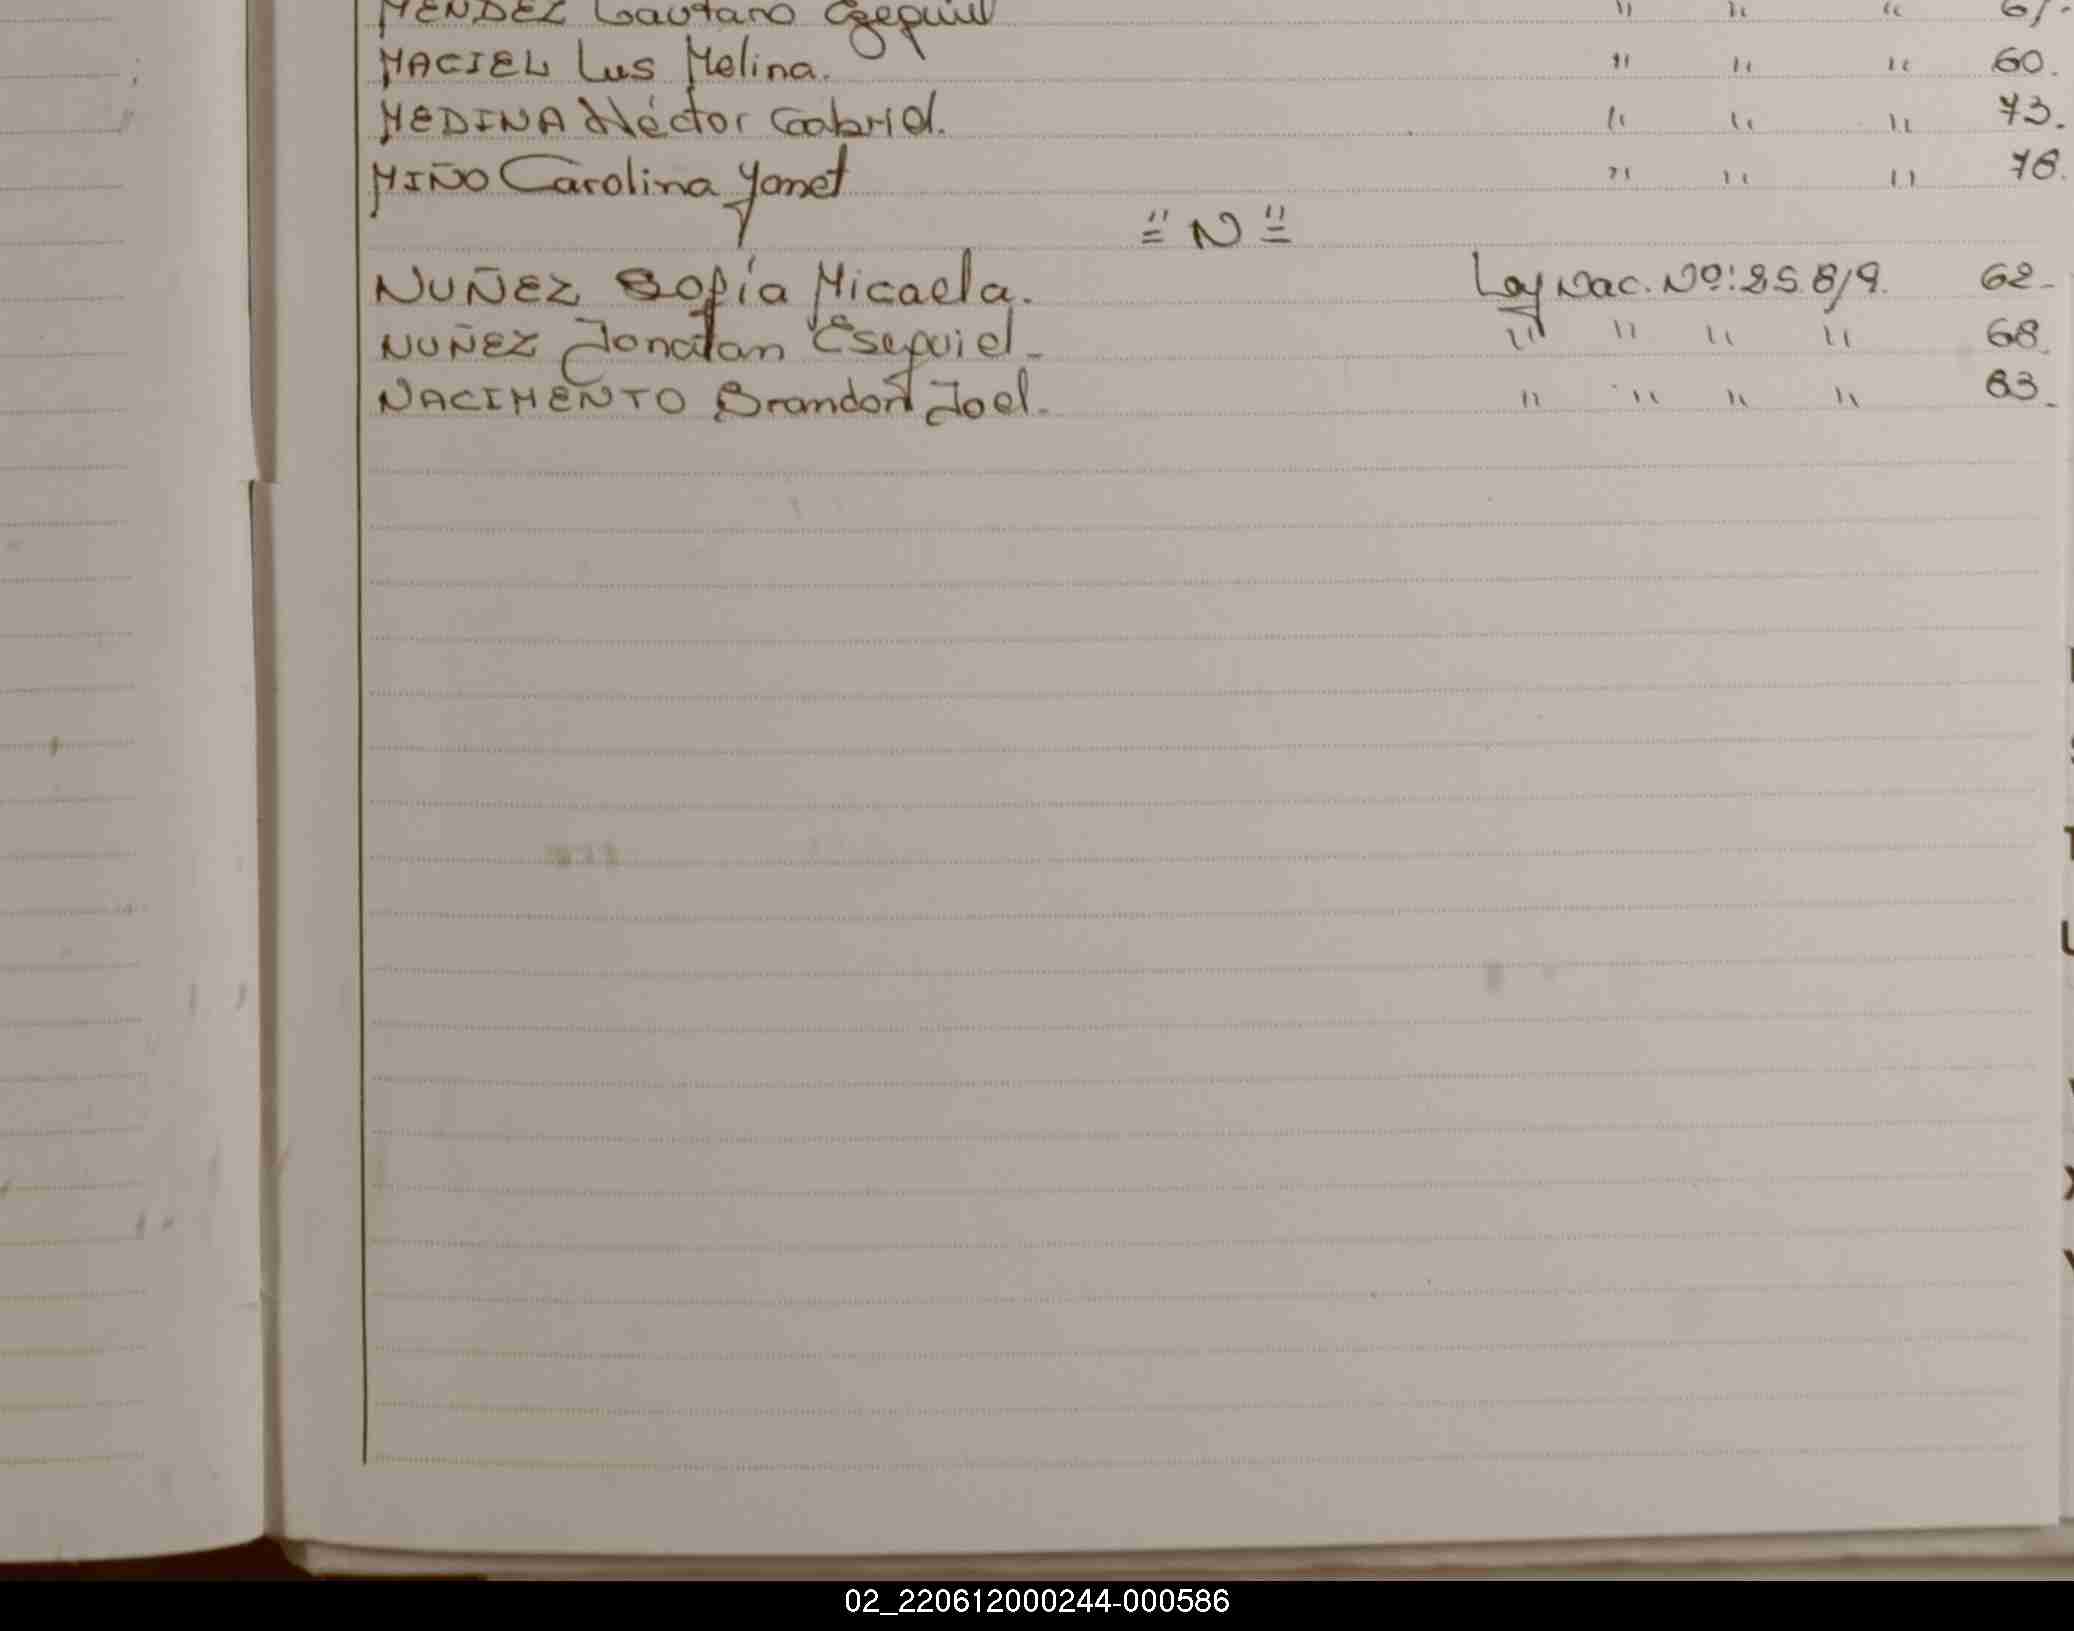 MENDEZ Lautaro Ezequiel " " " 67.-
MACIEL Lus Melina. " " " 60.
MEDINA Héctor Gabriel. " " " 73.
MIÑO Carolina Yanet " " " 78.
="N"=
NUÑEZ Sofía Micaela. Ley Nac. Nº: 25.819. 62-
NUÑEZ Jonatan Esequiel- " " " " 68.
NACIMENTO Brandon Joel- " " " " 83.
T
U
V
X
Y
02_220612000244-000586